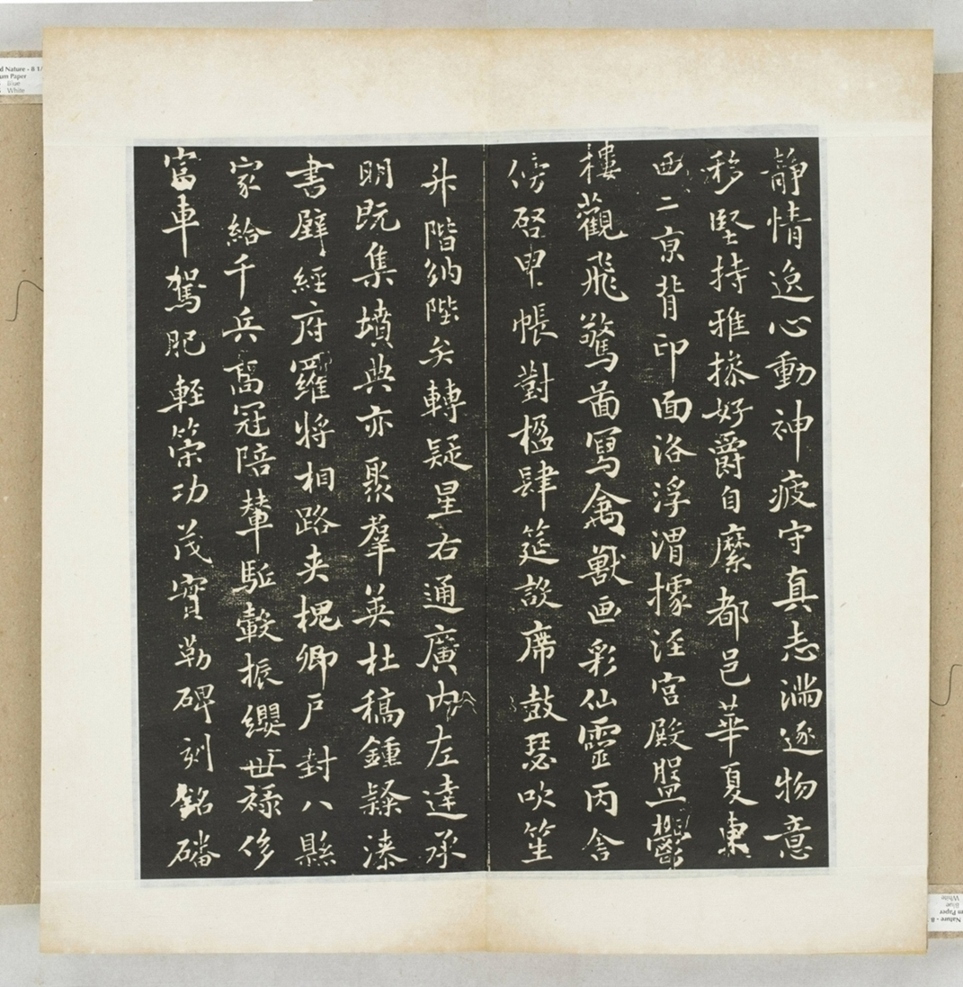 靜情逸心動神疲守真志滿逐物意
移堅持雅操好爵自縻都邑華夏東
西二京背邙面洛浮渭據涇宮殿盤鬱
樓觀飛驚圖寫禽獸画彩仙靈丙舍
傍啓甲帳對楹肆筵設席鼓瑟吹笙
升階納陛弁轉疑星右通廣內左達承
明既集墳典亦聚羣英杜稿鍾隸漆
書壁經府羅將相路夾槐卿戶封八縣
家給千兵高冠陪輦駈轂振纓世祿侈
富車駕肥輕策功茂實勒碑刻銘磻
Nature - 8
Paper
Blue
White
Nature - 8
Paper
Blue
White